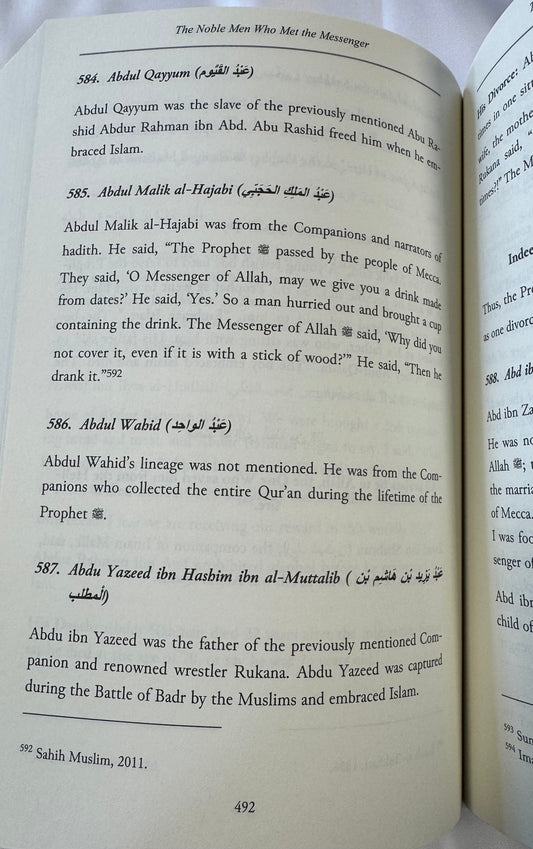 The Noble Men Who Met the Messenger
584. Abdul Qayyum (عَبْدُ القَيُّوم)
Abdul Qayyum was the slave of the previously mentioned Abu Ra-
shid Abdur Rahman ibn Abd. Abu Rashid freed him when he em-
braced Islam.
585. Abdul Malik al-Hajabi (عَبْدُ المَلِكِ الحَجَبِي)
Abdul Malik al-Hajabi was from the Companions and narrators of
hadith. He said, “The Prophet ﷺ passed by the people of Mecca.
They said, ‘O Messenger of Allah, may we give you a drink made
from dates?’ He said, ‘Yes.’ So a man hurried out and brought a cup
containing the drink. The Messenger of Allah ﷺ said, ‘Why did you
not cover it, even if it is with a stick of wood?’” He said, “Then he
drank it.”592
586. Abdul Wahid (عَبْدُ الواحِد)
Abdul Wahid’s lineage was not mentioned. He was from the Com-
panions who collected the entire Qur’an during the lifetime of the
Prophet ﷺ.
587. Abdu Yazeed ibn Hashim ibn al-Muttalib (عَبْدُ يَزِيد بْن هَاشِم بْن
المطلب)
Abdu ibn Yazeed was the father of the previously mentioned Com-
panion and renowned wrestler Rukana. Abdu Yazeed was captured
during the Battle of Badr by the Muslims and embraced Islam.
592 Sahih Muslim, 2011.
492
His Divorce:
times in one
wife, the
Rukana said, “
times?!” The
Indee
Thus, the
as one
588. Abd
Abd ibn
He was
Allah ﷺ;
the
of Mecca.
I was
senger
Abd
child of
593
594